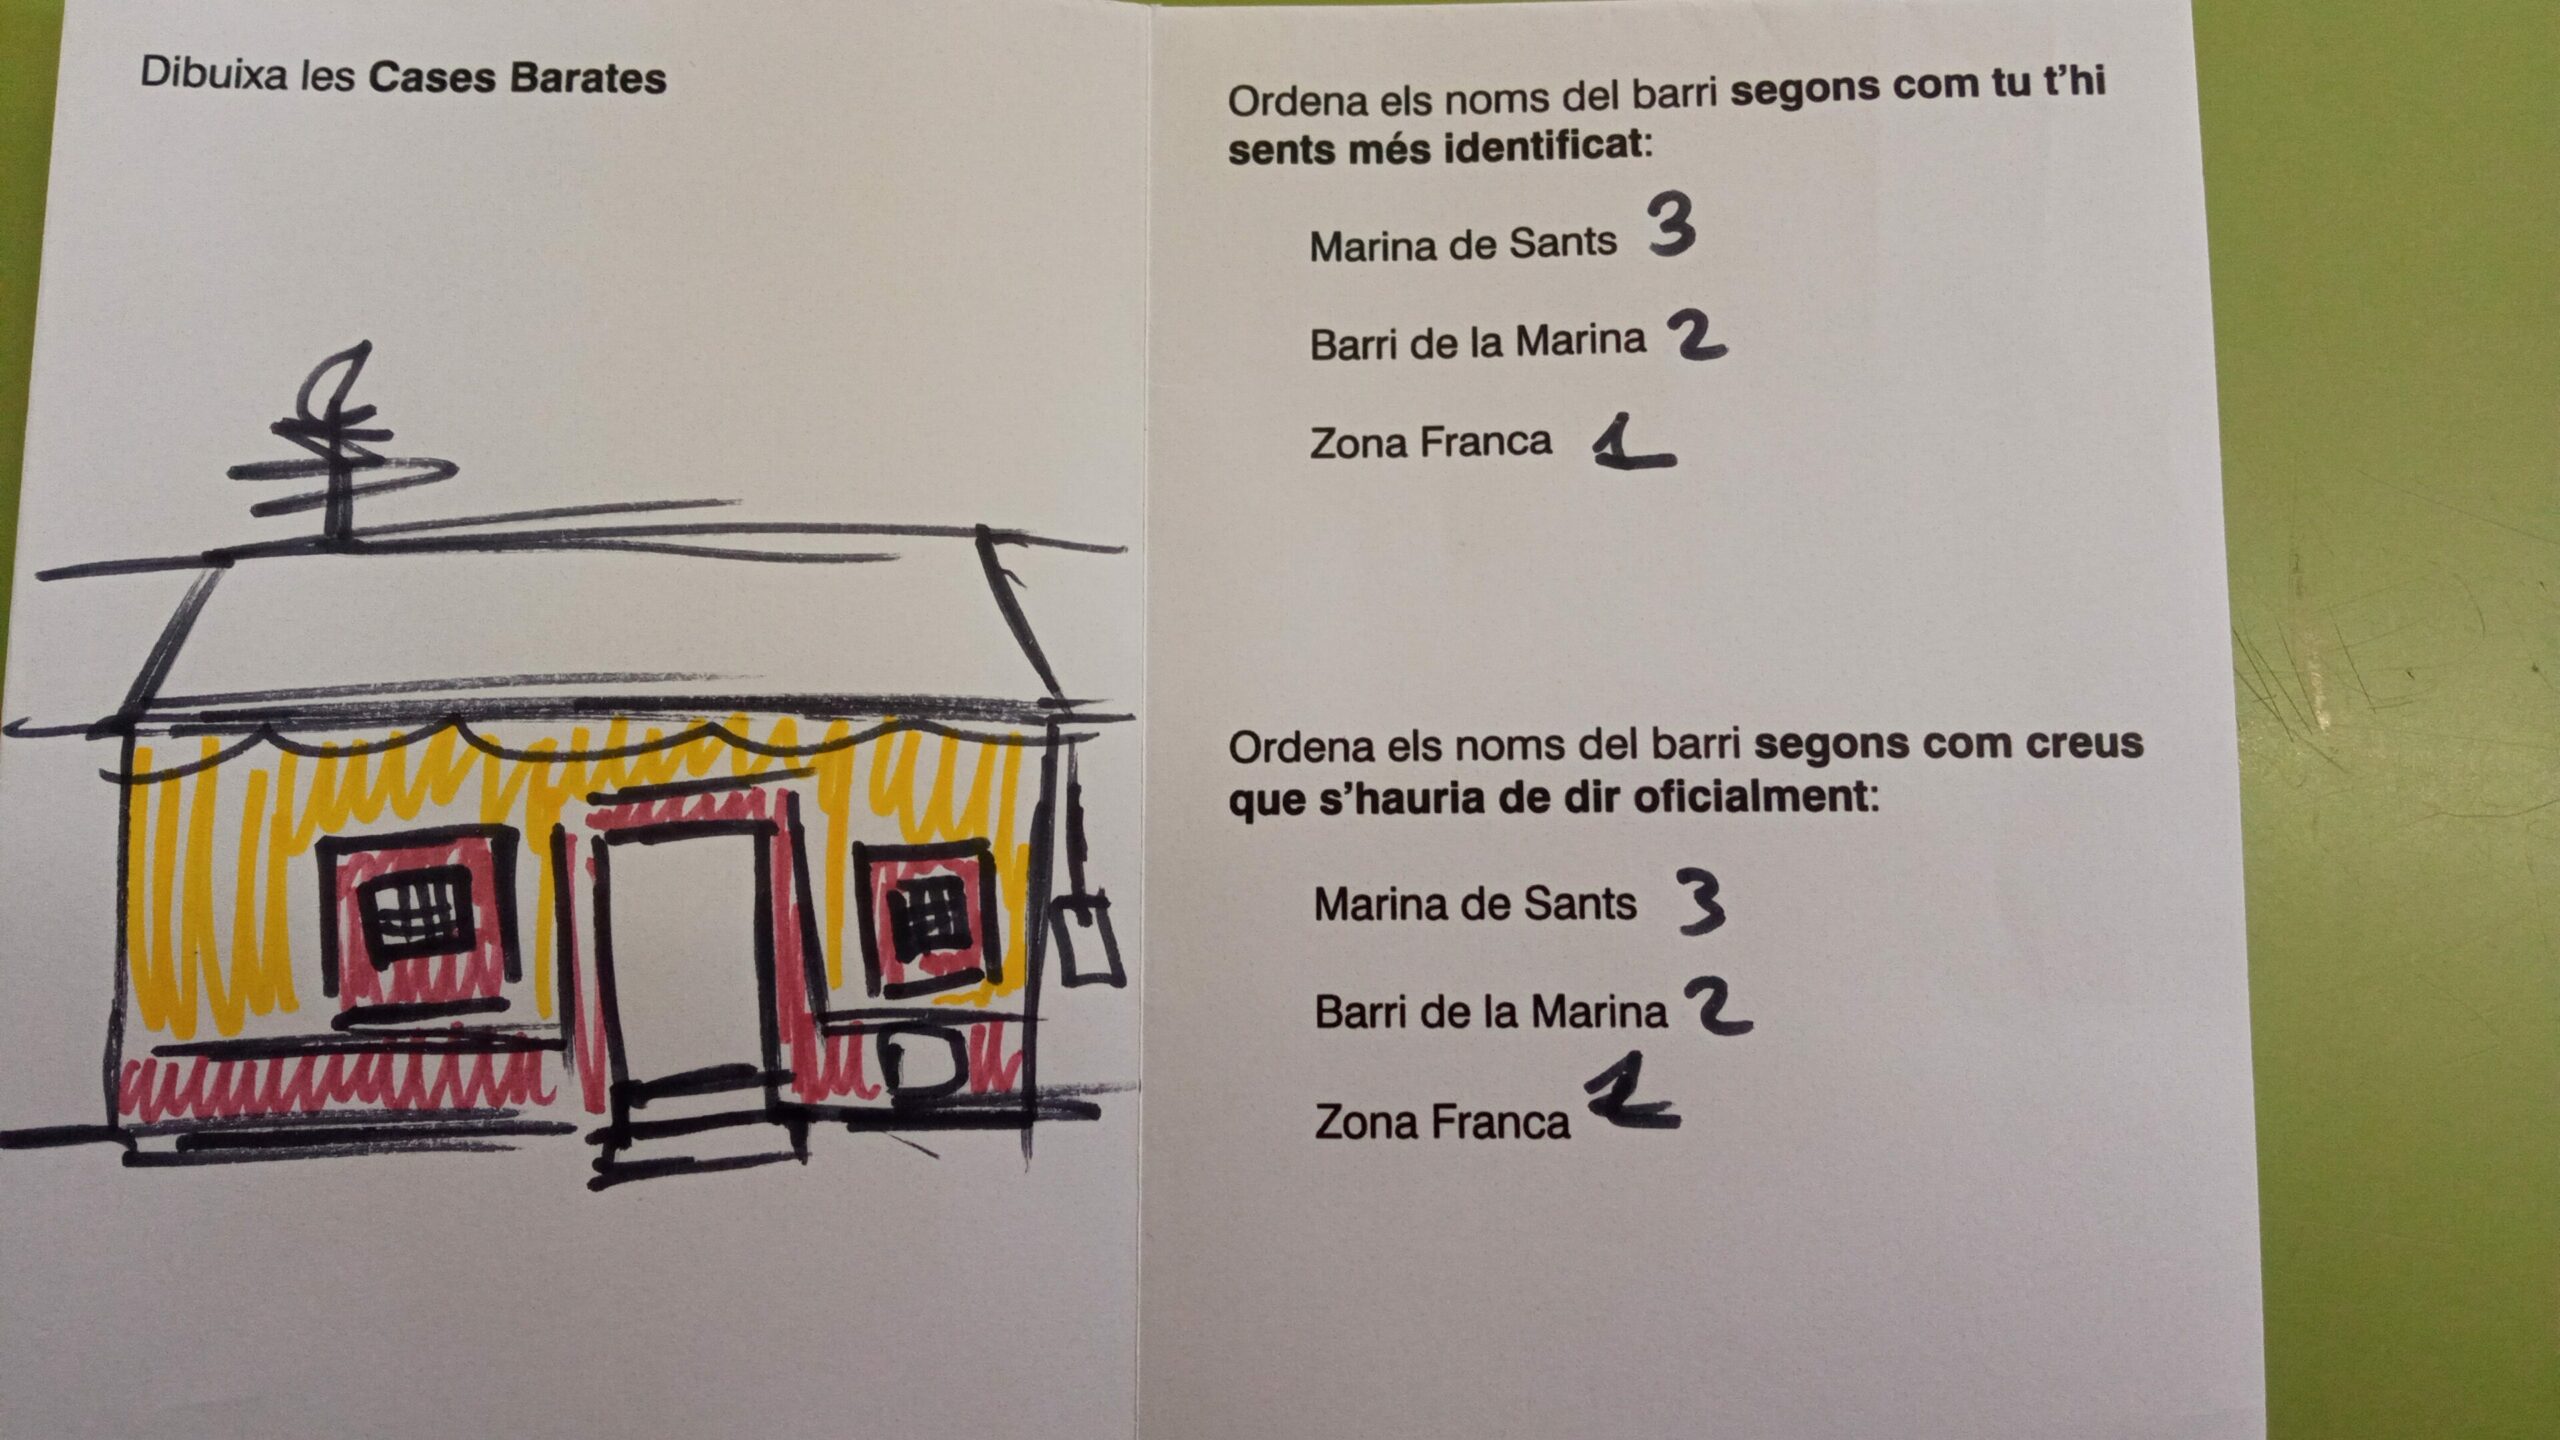 Dibuixa les Cases Barates
Ordena els noms del barri segons com tu t'hi
sents més identificat:
Marina de Sants 3
Barri de la Marina 2
Zona Franca 1
Ordena els noms del barri segons com creus
que s'hauria de dir oficialment:
Marina de Sants 3
Barri de la Marina 2
Zona Franca 1